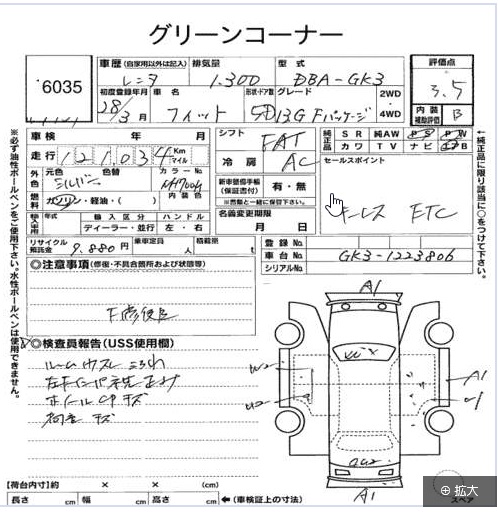 グリーンコーナー
6035
車歴 (自家用以外は記入)
レンタ
排気量
1.300
型式
DBA-GK3
評価点
3.5
初度登録年月
28/3
月
車 名
フィット
形状・ドア数
5D
グレード
13G Fパッケージ
2WD
4WD
内装
補助評価
B
車検 年 月
走行 121,034 Km マイル
シフト
FAT
冷房
AC
純正品
SR 純AW PS PW
カワ TV ナビ エアB
外色
元色
シルバー
色替
カラーNo.
NH700M
内装色
燃料
ガソリン・軽油・( )
新車整備手帳
(保証書付)
有・無
セールスポイント
キーレス ETC
輸入車
年式
輸入区分
ディーラー・並行
ハンドル
左・右
名義変更期限
月 日
リサイクル
預託金
9.880円
乗車定員
人
積載量
t
登録No.
車台No. GK3-1223806
シリアルNo.
◎注意事項 (修復・不具合箇所および状態等)
◎検査員報告(USS使用欄)
A1
W2
U2
A1
U1
A1
【荷台内寸】約 × × (cm)
長さ cm 幅 cm 高さ cm ←(車検証上の寸法)
スペア
拡大
※必ず油性ボールペンをご使用下さい。水性ボールペンは使用できません。
←純正品に限り該当に○をつけて下さい。